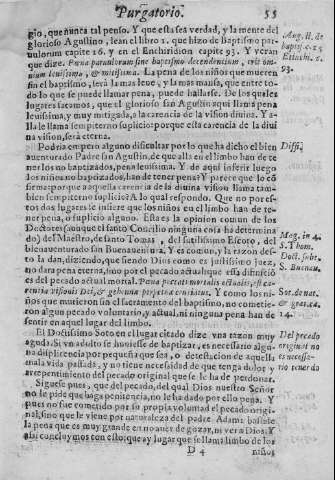 Purgatorio. 55
gio, que nunca tal penso. Y que esta sea verdad, y la mente del
glorioso Agustino, lean el libro 1. que hizo de Baptismo par-
uulorum capite 16. y en el Enchiridion capite 93. Y veran
que dize. Pœna paruulorum sine baptismo decendencium, erit om-
nium leuissima, & mitissima. La pena de los niños que mueren
sin el baptismo, terá la mas leue, y la mas mansa, que entre to-
do lo que se puede llamar pena, puede hallarse. De los quales
lugares sacamos, que el glorioso san Agustin aqui llama pena
leuissima, y muy mitigada, a la carencia de la vision diuina. Y a-
lla le llama sempiterno suplicio: porque esta carencia de la diui
na vision, será eterna.
Podria empero alguno dificultar por lo que ha dicho el bien
auenturado Padre san Agustin, de que alla en el limbo han de te
ner los no baptizados, pena leuissima. Y de aqui inferir luego
los niños no baptizados, han de tener pena? Y parece que lo cõ
firma: porque a aquella carencia de la diuina vision llama tam-
bien sempiterno suplicio? A lo qual respondo. Que no por es-
tos dos lugares se infiere que los niños en el limbo han de te-
ner pena, o suplicio alguno. Esta es la opinion comun de los
Doctores (aunque el santo Concilio ninguna cosa ha determina
do) del Maestro, de santo Tomas, del sutilissimo Escoto, del
bienauenturado san Buenauentura. Y es comun, y la razon des-
to la dan, diziendo, que siendo Dios como es justissimo Juez,
no dara pena eterna, sino por el pecado actual: que esta difinició
es del pecado actual mortal. Pœna peccati mortalis actualis, est ca-
rentia visionis Dei, & gehennæ perpetuæ cruciatus. Y como los ni-
ños que murieron sin el sacramento del baptismo, no cometie-
ron algun pecado voluntario, y actual, ni ninguna pena han de
sentir en aquel lugar del limbo.
El Doctissimo Soto en el lugar citado dize vna razon muy
aguda. Si vn adulto se huuiesse de baptizar, es necessario algu-
na displicencia por pequeña que sea, o detestacion de aquella
mala vida passada, y no tiene necesidad de que tenga dolor y
arrepentimiento del pecado original que se le ha de perdonar.
Siguese pues, que del pecado, del qual Dios nuestro Señor
no le pide que haga penitencia, no le ha dado por ello pena. Y
pues no fue cometido por su propia voluntad el pecado origi-
nal, sino que le viene por naturaleza del padre Adam: bastale
la pena que es muy grande en no auer de gozar, ni ver a Dios. Y
assi concluymos con esto: que ay lugar que se llama limbo de los
D 4 niños
Aug. li. de
baptis. c. 25
Enchi. c.
93.
Diffi.
Mag. in 4.
S. Thom,
Doct. subt.
S. Buenau.
Sot. de nat.
& gra. ca.
14.
Del pecado
original no
es necessa-
rio tener do